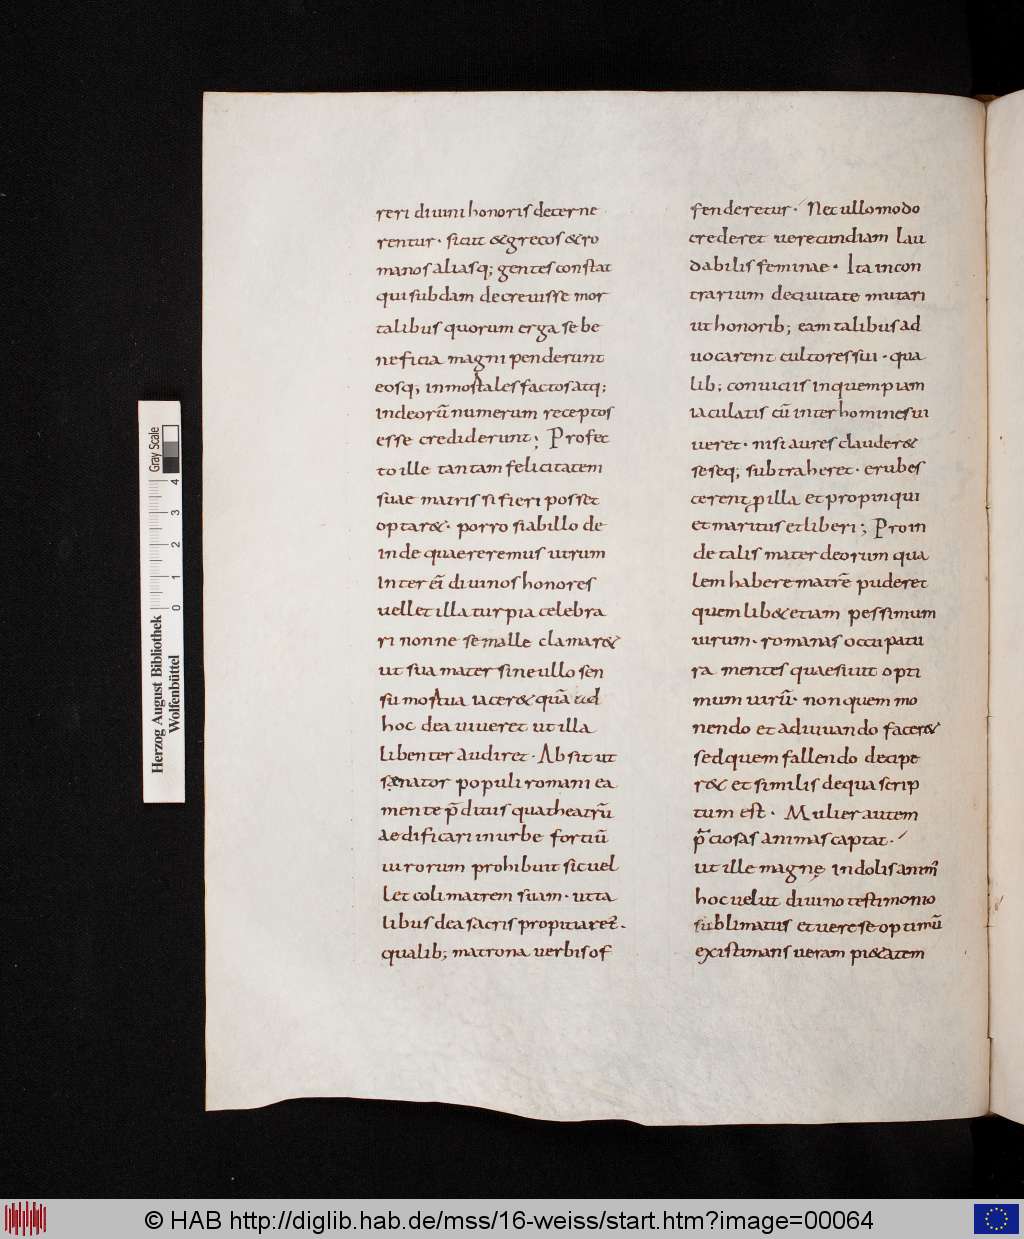 reri diuini honoris decerne
rentur· sicut &grecos &ro
manos aliasq; gentes constat
quisubdam decreuisse mor
talibus quorum erga se be
neficia magni penderunt
eosq; inmortales factos atq;
indeorū numerum receptos
esse crediderunt; Profec
to ille tantam felicitatem
suae matris si fieri posset
optar&· porro siabillo de
inde quaereremus utrum
inter eī diuinos honores
uellet illa turpia celebra
ri nonne se malle clamar&
ut sua mater sine ullo sen
su mortua iacer& quā ad
hoc dea uiueret ut illa
libenter audiret· Absit ut
sęnator populi romani ea
mente p̄ditus qua theatrū
aedificari inurbe fortiū
uirorum prohibuit sic uel
let coli matrem suam· ut ta
libus dea sacris propitiaret᷒·
qualib; matrona uerbis of
fenderetur· Nec ullo modo
crederet uerecundiam lau
dabilis feminae· Ita incon
trarium deciuitate mutari
ut honorib; eam talibus ad
uocarent cultores sui· qua
lib; conuiciis in quempiam
iaculatis cū inter homines ui
ueret· nisi aures clauder&
seseq; subtraheret· erubes
cerent ꝓ illa et propinqui
et maritus et liberi; Proin
de talis mater deorum qua
lem habere matrē puderet
quemlib& etiam pessimum
uirum· romanas occupatu
ra mentes quaesiuit opti
mum uirū· non quem mo
nendo et adiuuando facer&
sed quem fallendo decipe
r& et similis de qua scrip
tum est· Mulier autem
p̄ciosas animas captat·
ut ille magnę indolis animꝰ
hoc uelut diuino testimonio
sublimatus et uere se optimū
existimans ueram pi&atem
Herzog August Bibliothek
Wolfenbüttel
0 1 2 3 4
Gray Scale
© HAB http://diglib.hab.de/mss/16-weiss/start.htm?image=00064